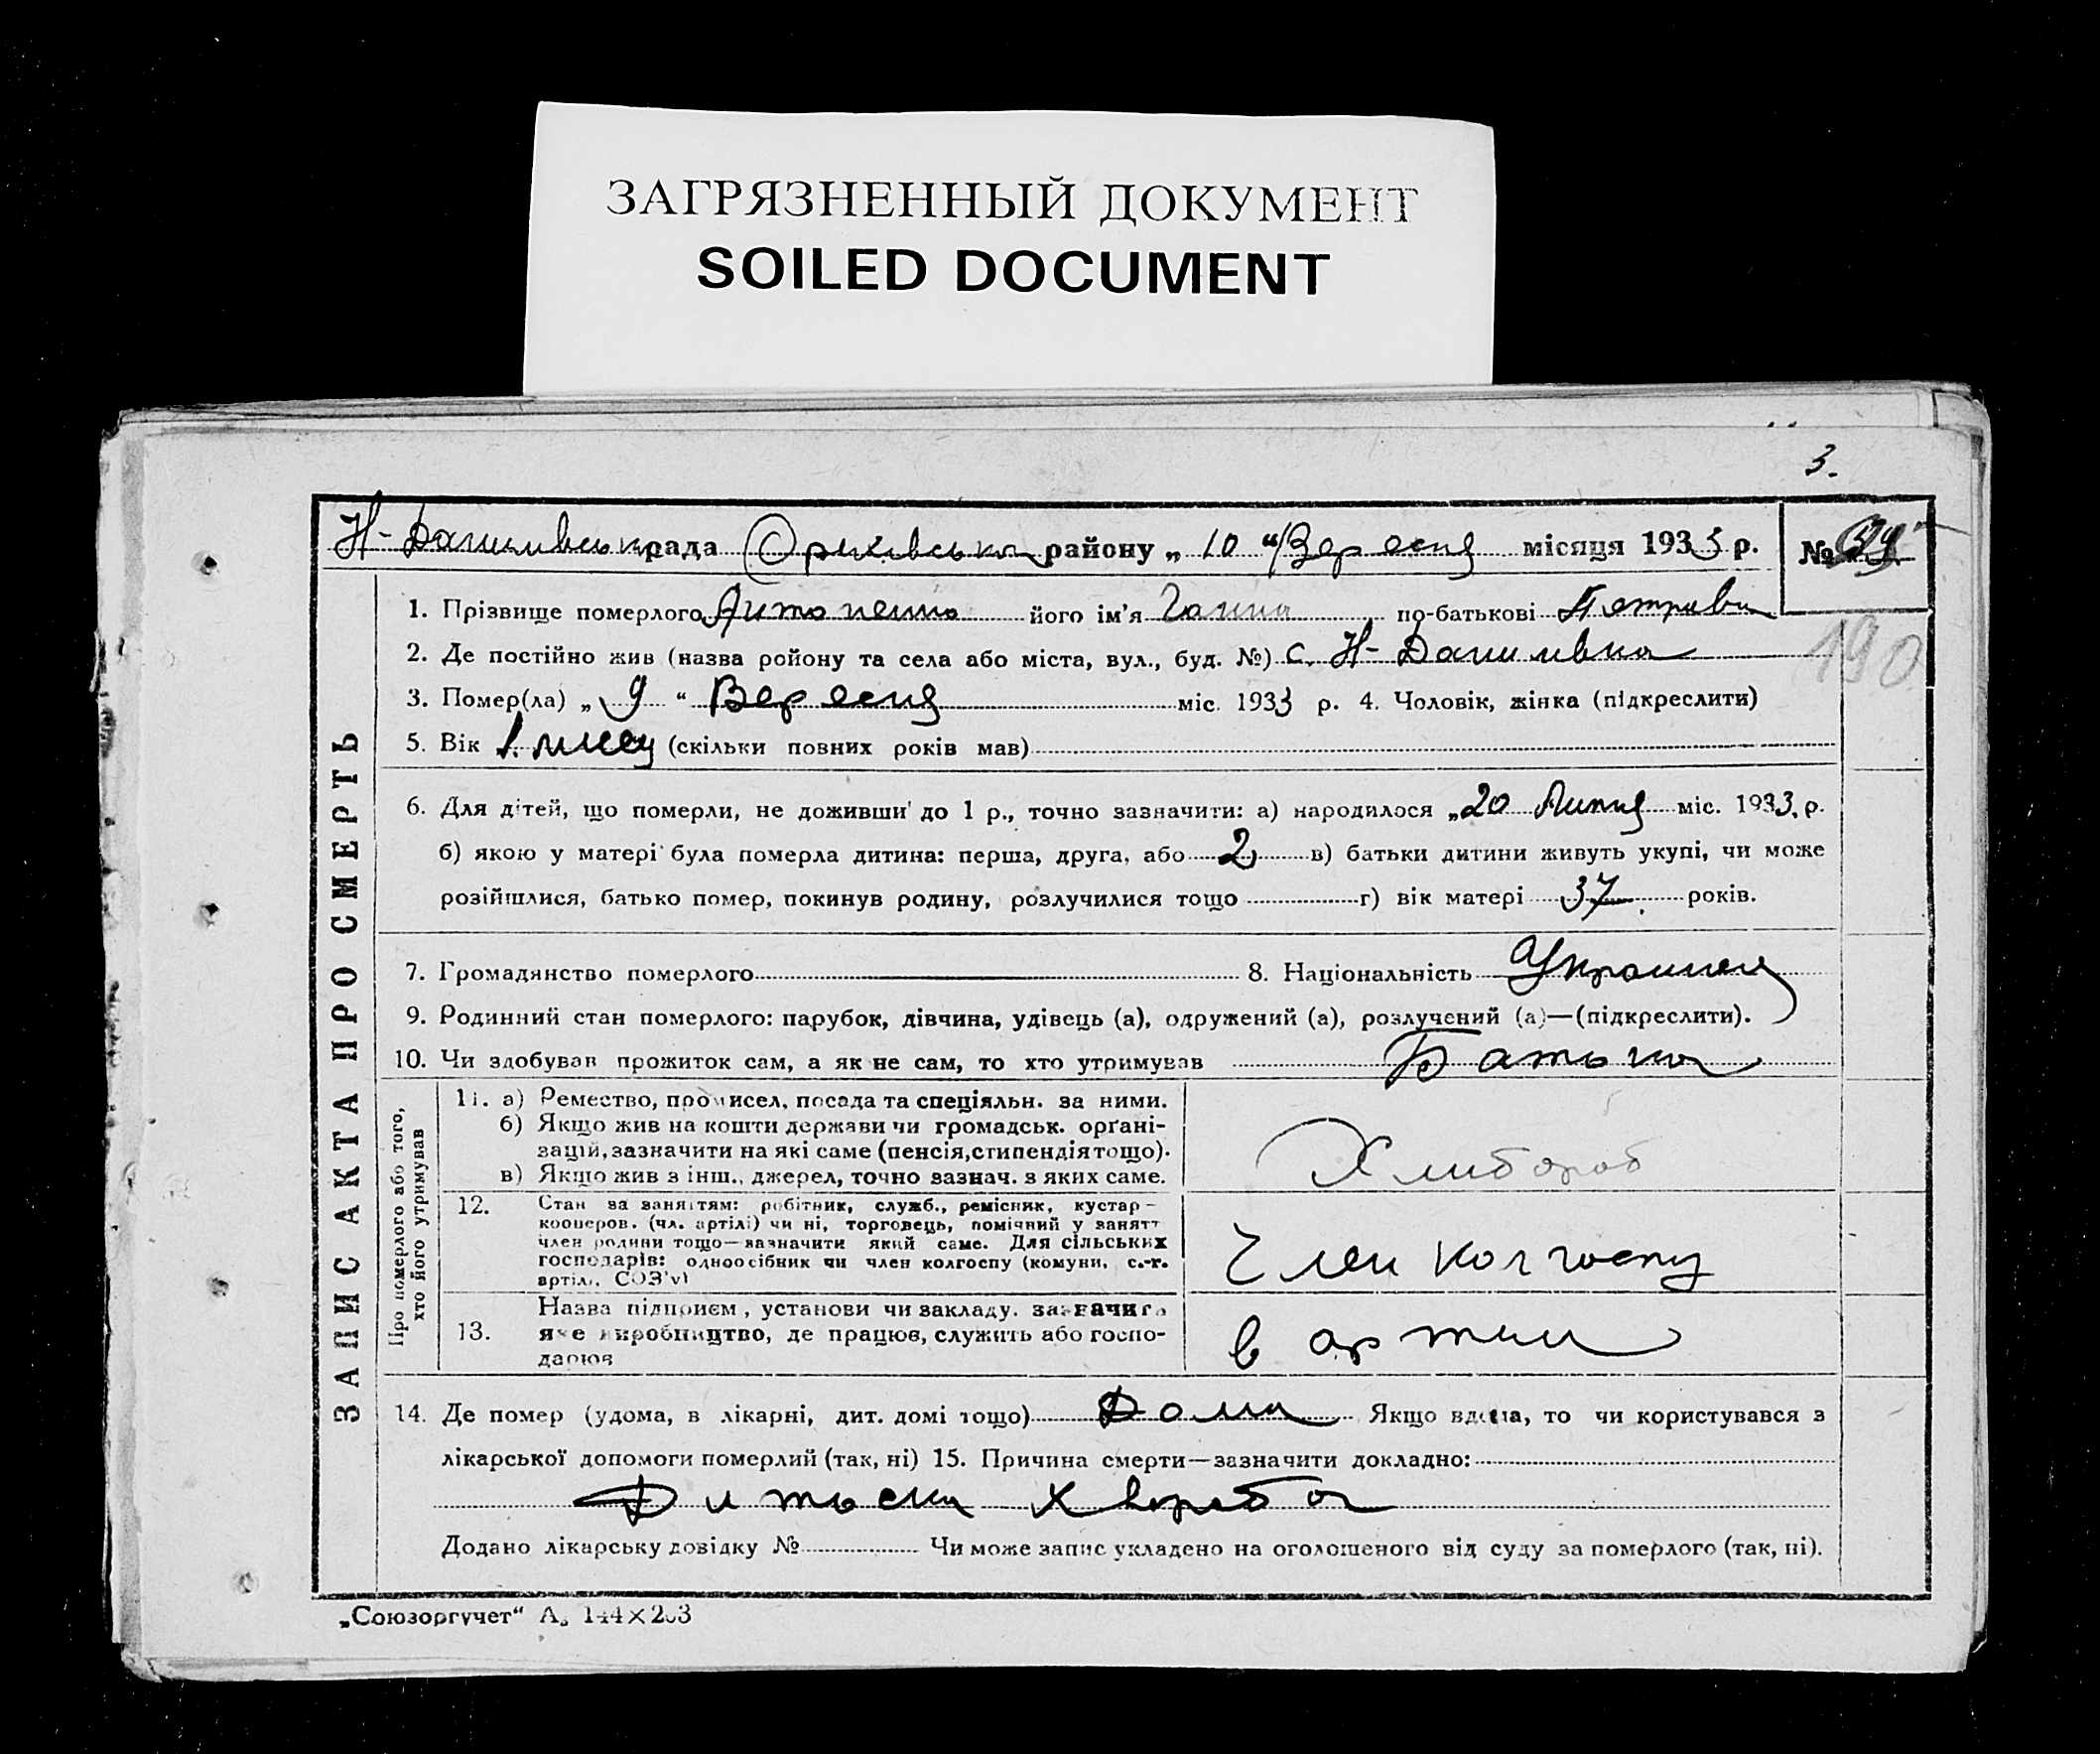 ЗАГРЯЗНЕННЫЙ ДОКУМЕНТ
SOILED DOCUMENT
3.
Н-Данилівська рада Оріхівська району „ 10 “ Вересня місяця 1933 р. №
190
ЗАПИС АКТА ПРО СМЕРТЬ
1. Прізвище померлого Антоненко його ім'я Ганна по-батькові Петрівна
2. Де постійно жив (назва ройону та села або міста, вул., буд. №) с. Н-Данилівка
3. Помер(ла) „ 9 “ Вересня міс. 1933 р. 4. Чоловік, жінка (підкреслити)
5. Вік 1. місяц (скільки повних років мав)
6. Для дітей, що померли, не доживши до 1 р., точно зазначити: а) народилося „20 Липня міс. 1933. р.
б) якою у матері була померла дитина: перша, друга, або 2 в) батьки дитини живуть укупі, чи може
розійшлися, батько помер, покинув родину, розлучилися тощо г) вік матері 37 років.
7. Громадянство померлого 8. Національність Украинец
9. Родинний стан померлого: парубок, дівчина, удівець (а), одружений (а), розлучений (а)—(підкреслити).
10. Чи здобував прожиток сам, а як не сам, то хто утримував Батько
Про померлого або того, хто його утримував
11. а) Ремество, промисел, посада та спеціяльн. за ними.
б) Якщо жив на кошти держави чи громадськ. орґані-
зацій, зазначити на які саме (пенсія, стипендія тощо).
в) Якщо жив з інш., джерел, точно зазнач. з яких саме.
Хлибороб
12. Стан за заняттям: робітник, служб., ремісник, кустар-
кооперов. (чл. артілі) чи ні, торговець, помічний у занятт
член родини тощо—зазначити який саме. Для сільських
господарів: одноосібник чи член колгоспу (комуни, с.-г.
артілі, СОЗ'у)
Член колгоспу
13. Назва підприєм, установи чи закладу. зазначити
яке виробництво, де працюв, служить або госпо-
дарюв
в артили
14. Де помер (удома, в лікарні, дит. домі тощо) Дома Якщо вдома, то чи користувався з
лікарської допомоги померлий (так, ні) 15. Причина смерти—зазначити докладно:
Дитьска хвороба
Додано лікарську довідку № Чи може запис укладено на оголошеного від суду за померлого (так, ні).
„Союзоргучет“ А₅ 144×203